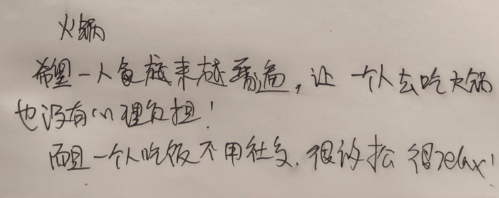 火锅
希望一人食越来越普遍，让一个人去吃火锅
也没有心理负担！
而且一个人吃饭不用社交，很放松 很relax！